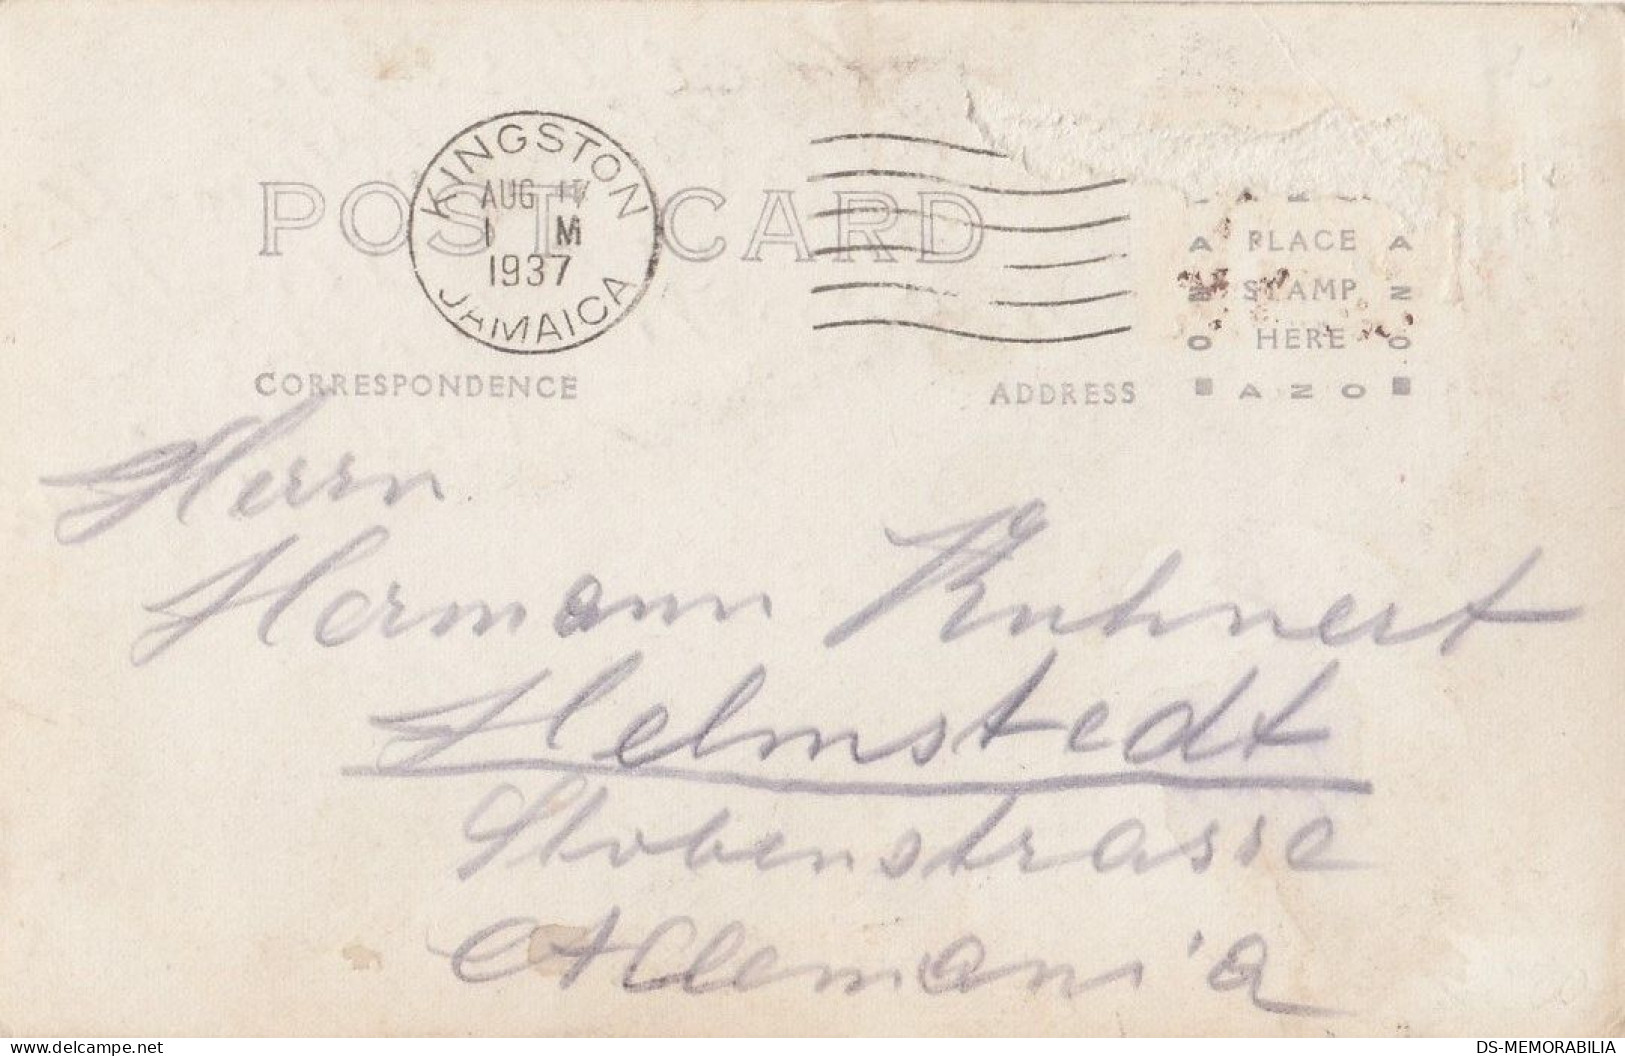 KINGSTON
AUG
1 M
1937
JAMAICA
POST CARD
PLACE
STAMP
HERE
AZO
CORRESPONDENCE
ADDRESS
Herrn
Hermann Kuhnert
Helmstedt
Stobenstrasse
Allemania
DS-MEMORABILIA